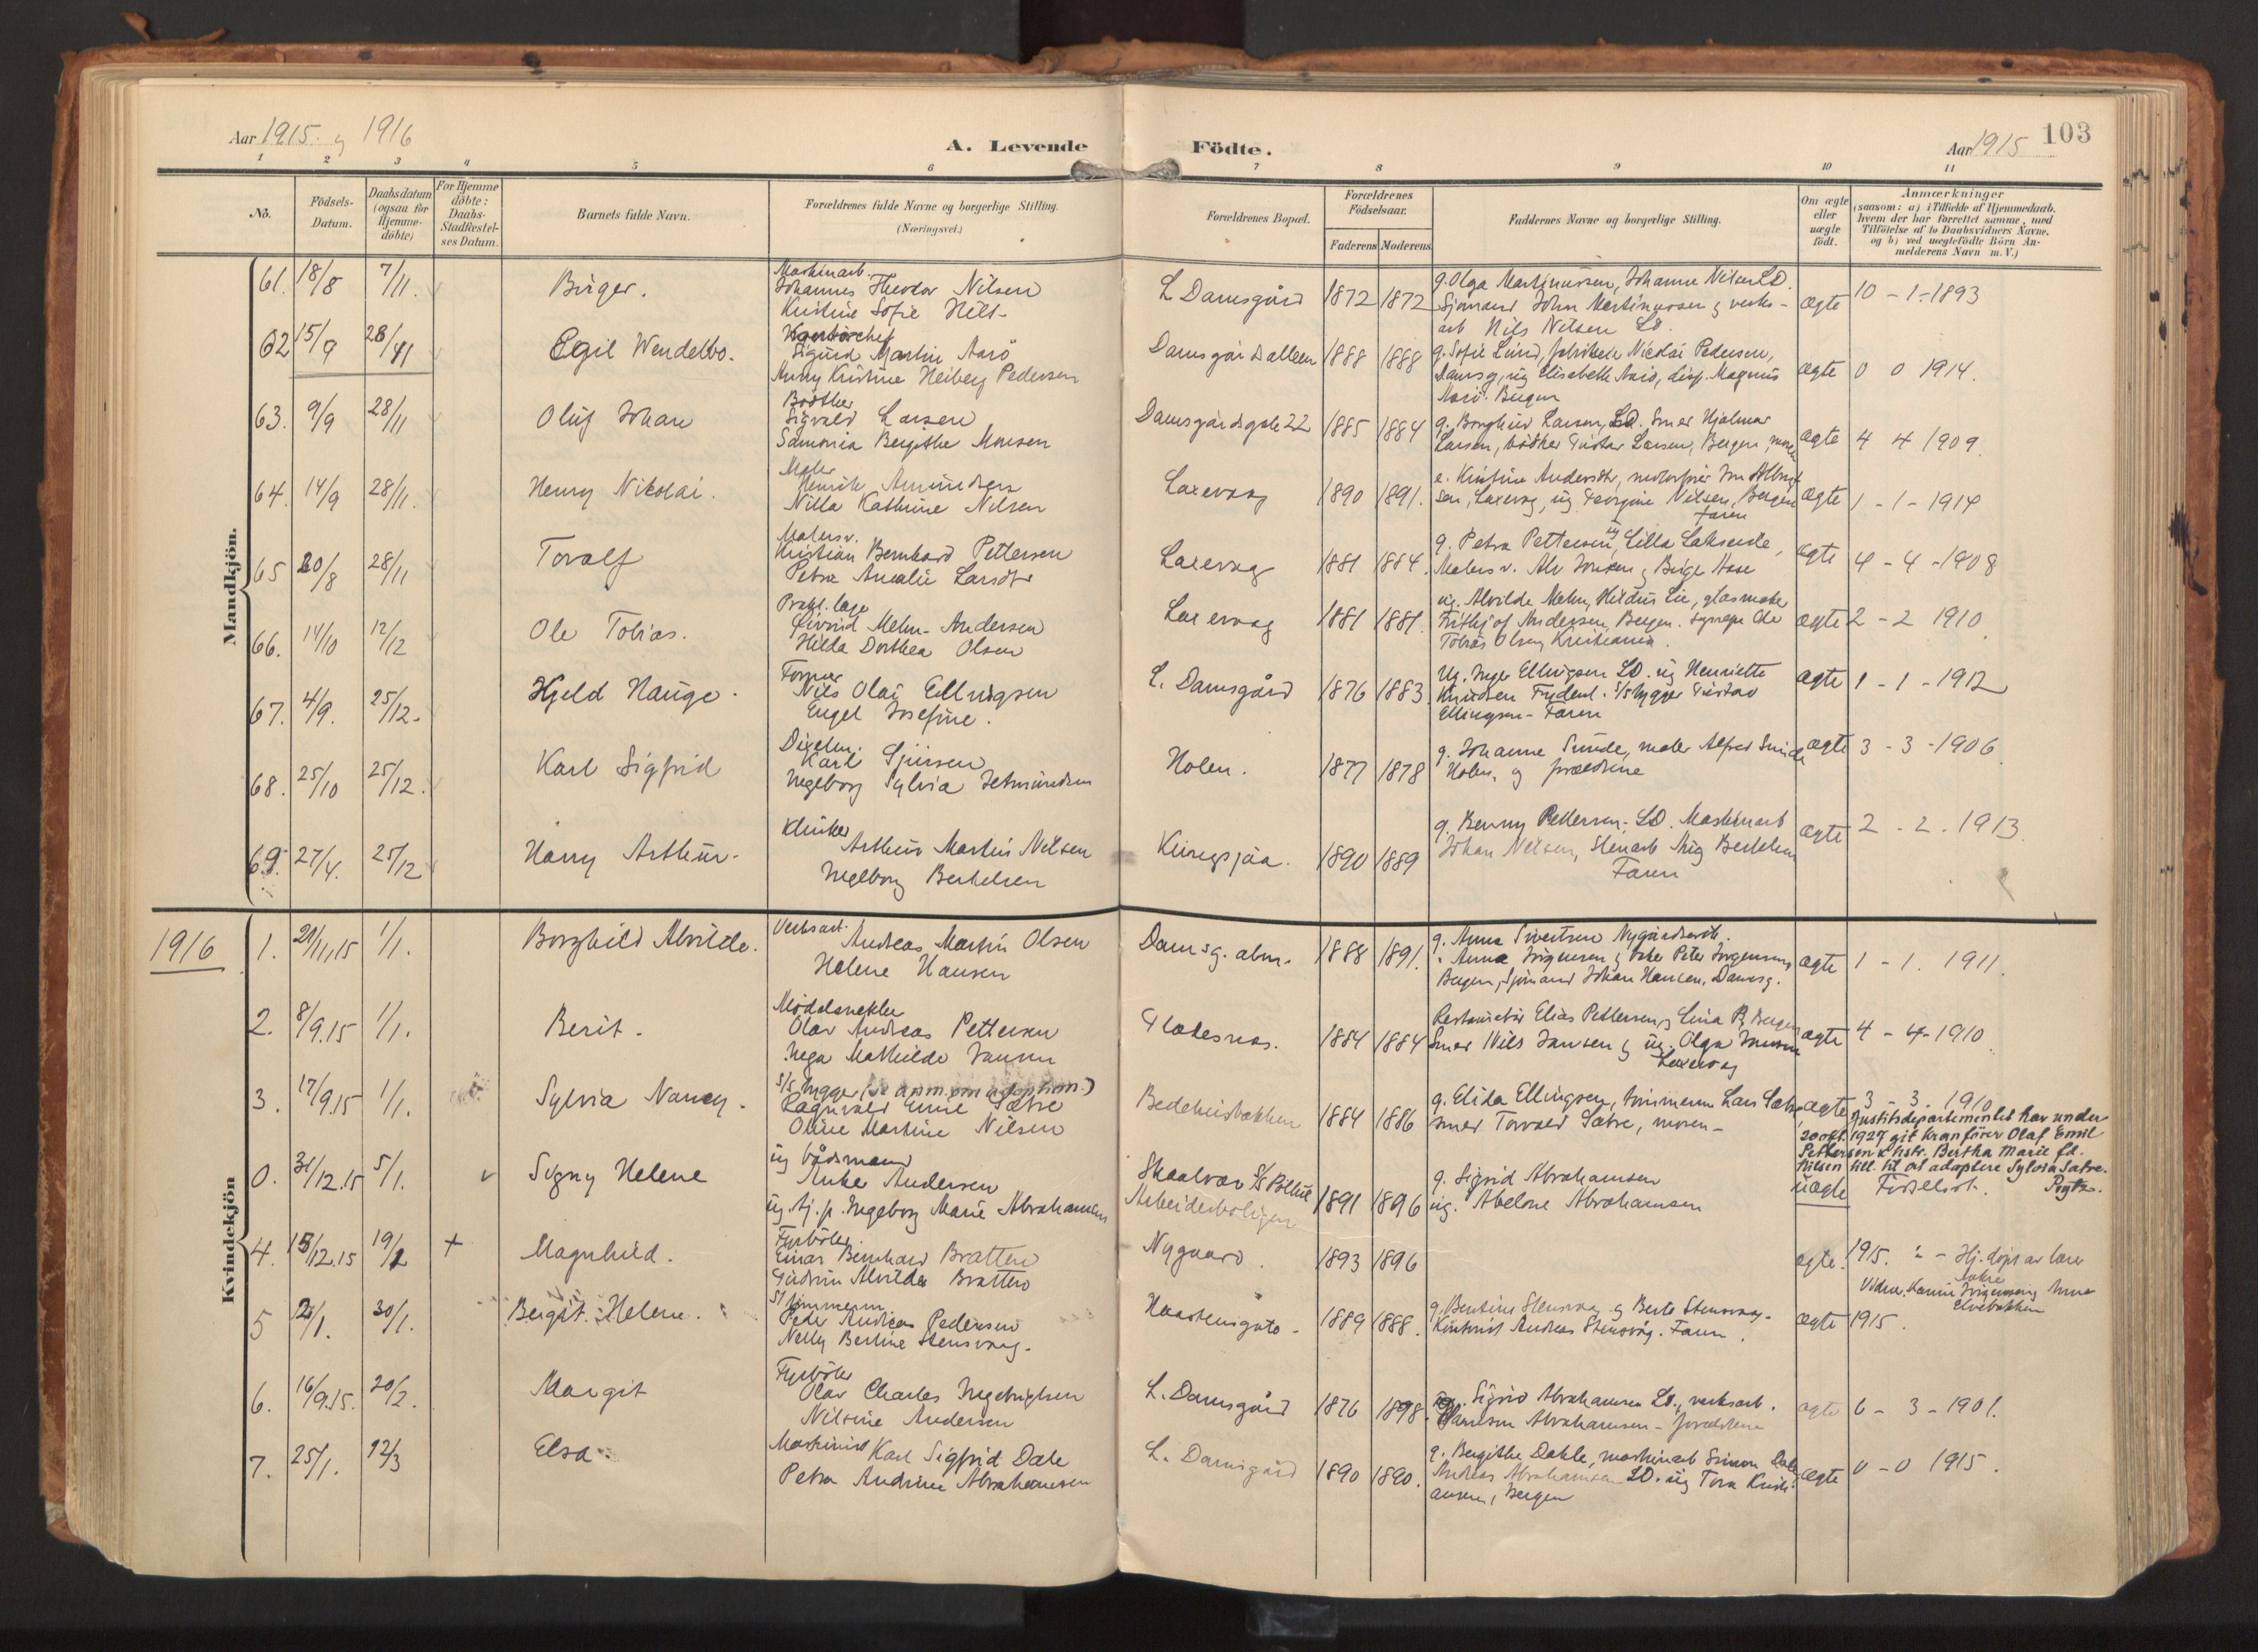 Aar 1915 og 1916
A. Levende Födte.
Aar 1915
103
1 2 3 4 5 6 7 8 9 10 11
Nö.
Födsels-Datum.
Daabsdatum (ogsaa for Hjemme-döbte)
For Hjemme döbte: Daabs-Stadfestel-ses Datum.
Barnets fulde Navn.
Forældrenes fulde Navne og borgerlige Stilling. (Næringsvei.)
Forældrenes Bopæl.
Forældrenes Födselsaar.
Faderens Moderens
Faddernes Navne og borgerlige Stilling.
Om ægte eller uægte födt.
Anmærkninger
(saasom: a) i Tilfælde af Hjemmedaab, hvem der har forrettet samme, med Tilföielse af to Daabsvidners Navne, og b) ved uægtefödte Börn Anmelderens Navn m.V.)
Mandkjön.
61. 18/8 7/11. Birger. Maskinarb. Johannes Theodor Nilsen Kristine Sofie Hilt- L Damsgård 1872 1872 g. Olga Martinussen, Johanne Nilsen LD. Sjömand John Martinussen g verks-arb Nils Nilsen LD. ægte 10 - 1 - 1893
62 15/9 28/11 Egil Wendelbo. Sigurd Martin Aarö Anny Kristine Heiberg Pedersen Damsgårdsalleen 1888 1888 g. Sofie Lund, fabrikeier Nicolai Pedersen, Damsg, ug Elisabeth Aarö, disp. Magnus Aarö. Bergen ægte 0 0 1914.
63. 9/9 28/11 Oluf Johan Bödtker Sigvald Larsen Samonia Bergithe Monsen Damsgårdsgate 22 1885 1884 g. Borghild Larsen, LD. Smed Hjalmar Larsen, bödker Gustav Larsen, Bergen, moren ægte 4 4 1909.
64. 14/9 28/11. Henry Nikolai. Maler Henrik Amundsen Nilla Kathrine Nilsen Laxevaag 1890 1891. e. Kristine Andersdtr, Laxevag, ug Georgine Nilsen, Bergen Faren ægte 1 - 1 - 1914
65 20/8 28/11 Toralf Malersv. Kristian Bernhard Pettersen Petra Amalie Larsdtr Laxevag 1881 1884. g. Petra Pettersen, ug Lilla Laksende, Malersv. Alv Jonsen g Birger Hase ægte 4 - 4 - 1908
66. 14/10 12/12 Ole Tobias. Prakt. læge Øivind Mehn-Andersen Hilda Dorthea Olsen Laxevag 1881 1881. ug. Alvilde Mehn, Hildur Lie, glasmaker Frithjof Andersen, Bergen. Ole Tobias Olsen, Kristiania. ægte 2 - 2 1910
67. 4/9. 25/12. Kjeld Hauge. Former Nils Olai Ellingsen Engel Josefine. L. Damsgård 1876 1883. Ug. Inge Ellingsen LD. ug Henriette Knudsen Frydenl. S/S bygger Gustav Ellingsen - Faren ægte 1 - 1 - 1912
68. 25/10 25/12. Karl Sigfrid Karl Sjursen Ingeborg Sylvia Holen. 1877 1878 g. Johanne Sunde, maler Alfred Sunde Holen, og forældrene ægte 3 - 3 - 1906
69. 27/4. 25/12 Harry Arthur. Klinker Arthur Martin Nilsen Ingeborg Berthelsen Kiregsjaa. 1890 1889 g. Benny Pettersen, LD. Maskinarb Johan Nilsen, Stenarb Stig Berthelsen Faren ægte 2 - 2 - 1913.
1916
Kvindekjön
1. 21/11,15 1/1. Borghild Alvilde. Verksarb. Andreas Martin Olsen Helene Hansen Damsg. alm. 1888 1891. g. Anna Sivertsen Nygårdsvik. Anna Jörgensen g Peter Jörgensen, Bergen, Sjömand Johan Hansen, Damsg. ægte 1 - 1. 1911.
2. 8/9.15 1/1. Berit. Möddelsnekker Olav Andreas Pettersen Inga Mathilde Jansen Gladesnes. 1884 1884 Restauratör Elias Pettersen, g Lina P, Bergen Smed Nils Jansen g ug. Olga Jansen Laxevag ægte 4 - 4 - 1910
3. 17/9.15 1/1. Sylvia Nancy. S/S bygger (se anm. om adoption.) Ragnvald Emil Sætre Oline Martine Nilsen Bedehusbakken 1884 1886 g. Elida Ellingsen, tömmerm Lars Sætre, smed Torvald Sætre, moren - ægte 3 - 3. 1910
Justitsdepartementet har under 20 okt. 1927 git Kranfører Olaf Emil Pettersen & hstr. Birtha Marie fd. Nilsen till. til at adoptere Sylvia Sætre. Prgtr.
0. 31/12.15 5/1. v Signy Helene ug bådsmand Anker Andersen ug. tj. p. Ingeborg Marie Abrahamsen Skaalvær S/S Pollux Arbeiderboligen 1891 1896 g. Sigrid Abrahamsen ug. Abelone Abrahamsen uægte Födselsat.
4. 15/12.15 19/1 + Magnhild. Fyrböter. Einar Bernhard Bratten Gudrun Alvilde Bratten Nygaard. 1893 1896 ægte. 1915. - Hj. döpt av
5 2/1. 30/1. Bergit Helene. Tömmerm. Peder Andreas Pedersen Nelly Bertine Stensvaag. Haastensgate. 1889 1888. g. Bentine Stensvaag g Berte Stensvaag. Andreas Stensvåg. Faren. ægte 1915.
6. 16/9.15. 20/2. Margit Fyrböter Olav Charles Ingebrigtsen Nilsine Andersen L. Damsgård 1876 1898. Sigrid Abrahamsen LD., verksarb. Abrahamsen - forældrene ægte 6 - 3 - 1901.
7. 25/1. 12/3 Elsa. Maskinist Karl Sigfrid Dale Petra Andrine Abrahamsen L. Damsgård 1890 1890. g. Bergithe Dahle, maskinarb Simon Dale, Andreas Abrahamsen LD. ug Tora Kristiansen, Bergen ægte 0 - 0 1915.